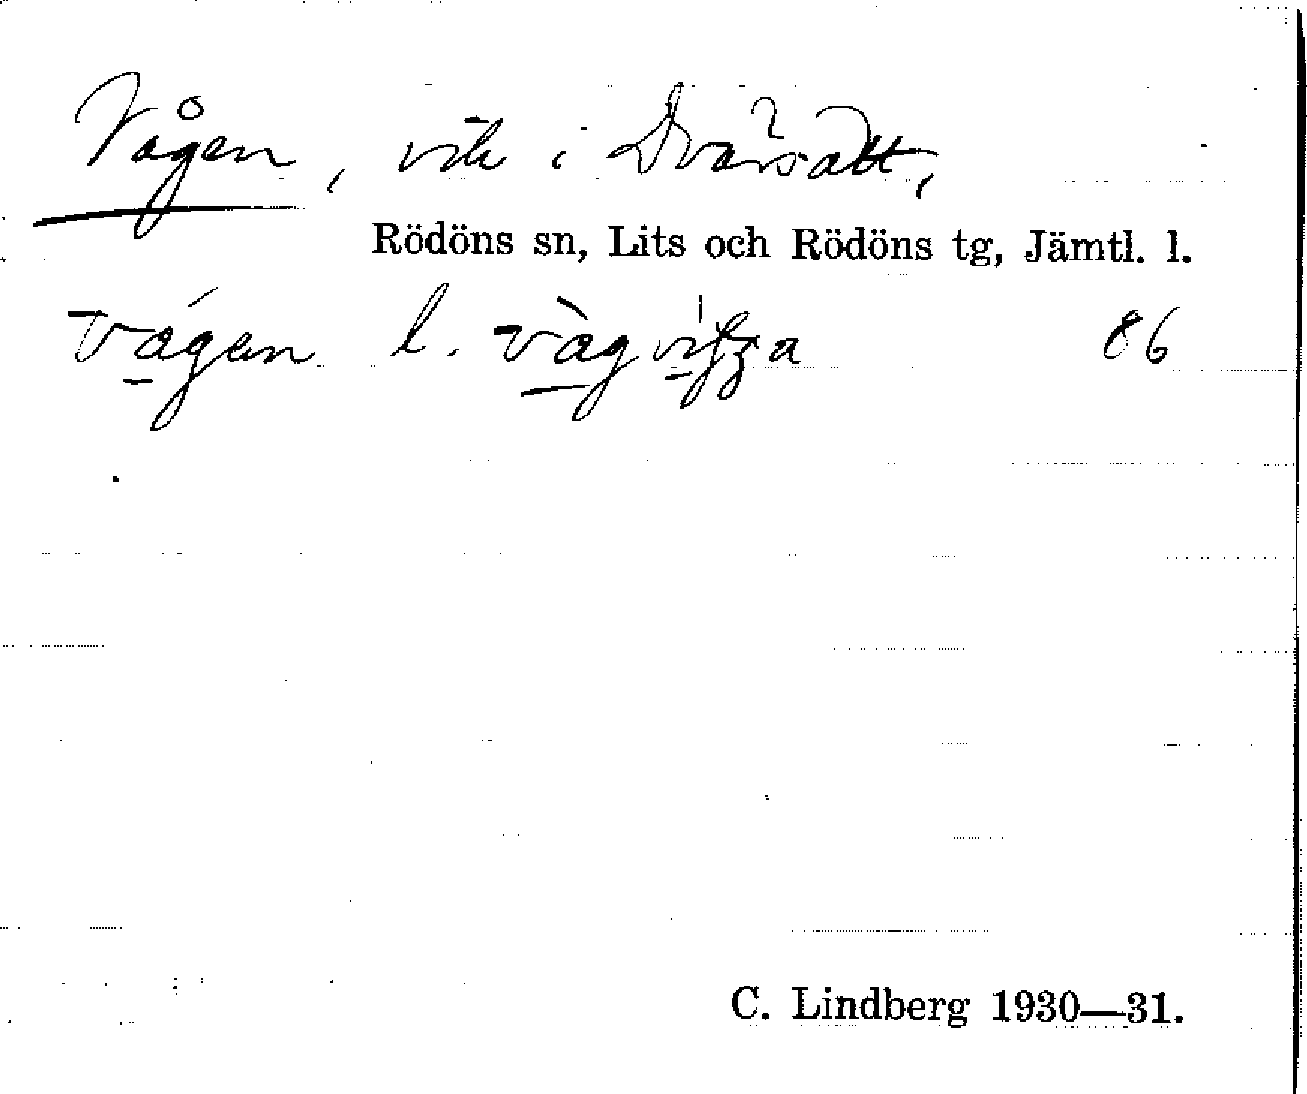 Vågen, vik i Dvärsätt,
Rödöns sn, Lits och Rödöns tg, Jämtl. l.
vágan l. 86
C. Lindberg 1930—31.